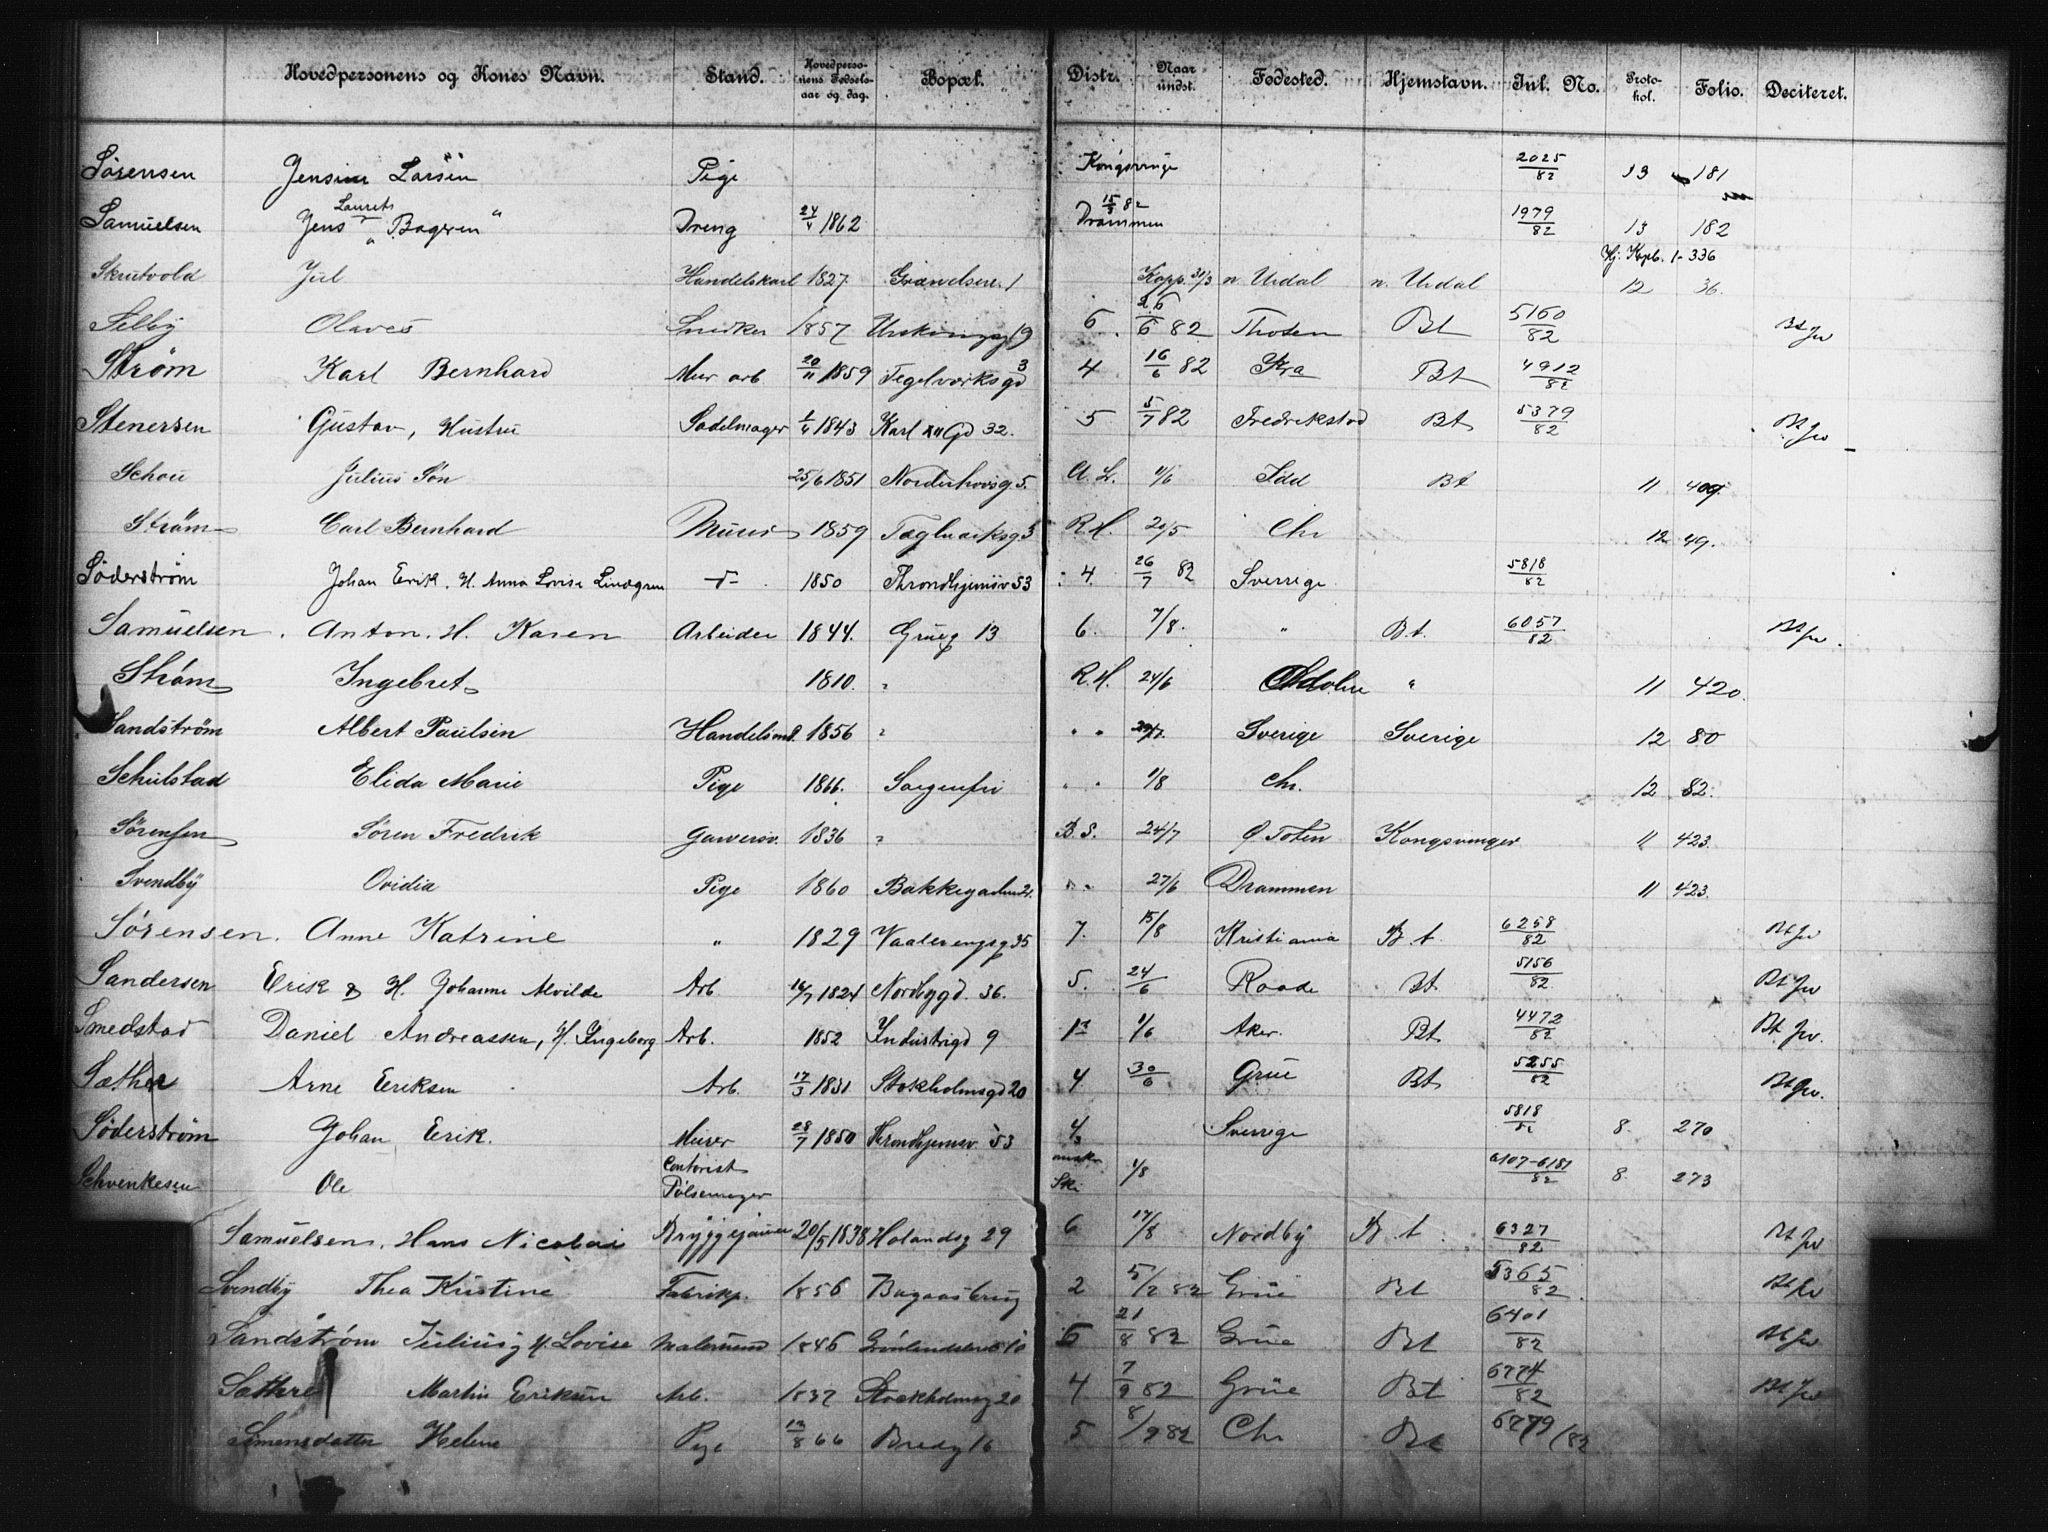 Hovedpersonens og Kones Navn. Stand. Hovedpersonens Fødselsaar og dag. Bopæl. Distr. Naar undst. Fødested. Hjemstavn. Jnl. No. Protokol. Folio. Deciteret.
Sørensen Jensine Larsen Pige Kongsvinge 2025/82 13 181
Samuelsen Jens Laurits Dreng 24/4 1862 15/3 82 Drammen 1979/82 13 182
Hj. Kopb. 1-336
Skrutvold Jul Handelskarl 1827 1 Kopp. 31/3 n. Urdal n. Urdal 12 36.
Selby Olaves Snedker 1857 19 6. 26/6 82 Thoten Bt 5160/82 Bt Jv
Strøm Karl Bernhard Mur arb 20/11 1859 Tegelværksgd 3 4 16/6 82 Kra Bt 4912/82
Stenersen Gustav, Hustru Sadelmager 1/4 1843 Karl XII Gd 32. 5 5/7 82 Fredrikstad Bt 5379/82 Bt Jv
Schou Julius Søn 25/6 1851 Norderhovsg 5. A. L. 1/6 Idd Bt 11 409.
Strøm Carl Bernhard Murer 1859 Taglværksg 3 R.H. 20/5 Chr 12 49.
Söderstrøm Johan Erik. H. Anna Lovise Lindgren -d- 1850 Throndhjemsv 53 4. 26/7 82 Sverrige 5818/82
Samuelsen. Anton. H. Karen Arbeider 1844. Grueg 13 6. 7/8. " Bt. 6057/82 Bt Jv.
Strøm Ingebret 1810. " R.H. 24/6 " 11 420.
Sandstrøm Albert Paulsen Handelsmd. 1856 " " " Sverige Sverige 12 80
Schulstad Elida Marie Pige 1866. Sorgenfri " " 1/8 Chr. 12 82.
Sørensen Søren Fredrik Garversv. 1836 " B.S. 24/7 Ø Toten Kongsvinger 11 423.
Svendby Ovidia Pige 1860 Bakkegaden 21. " " 27/6 Drammen 11 423.
Sørensen. Anne Katrine " 1829 Vaalerengsg 35 7. 15/8 Kristiania Bt. 6258/82 Bt Jv
Sandersen Erik & H. Johanne Alvilde Arb 16/7 1824 Nordbygd. 36. 5. 24/6 Raade Bt 5156/82 Bt Jv
Smedstad Daniel Andreassen, H. Ingeborg Arb. 1852 Industrigd 9 13 1/6 Aker. Bt 4472/82 Bt Jv.
Sæther Arne Eriksen Arb. 17/3 1831 Stokholmsgd 20 4 30/6 Grue Bt 5255/82 Bt Jv.
Söderstrøm Johan Erik. Murer 28/7 1850 Trondhjemsv. 53 4/3 Sverrige 5818/82 8. 270
Schvenkesen Ole Contorist Pølsemager Ski 1/8 6107-6181/82 8. 273
Samuelsen, Hans Nicolai 20/5 1838 Holandsg 29 6 17/8 Nordby Bt. 6327/82 Bt Jv
Svendby Thea Kristine Fabrikp. 1856 Bagaasbrug 2 82 Grue Bt 5365/82 Bt Jv
Sandstrøm Julius, H. Lovise Malersvend 1846 10 6 21/8 82 Grue Bt 6401/82 Bt Jv
Sæthre Martin Eriksen Arb. 1837 Stockholmsg 20 4 7/9 82 Grue Bt 6774/82 Bt Jv
Simensdatter Helene Pige 13/8 66 Bredg 16 5 8/9 82 Chr Bt 6779/82